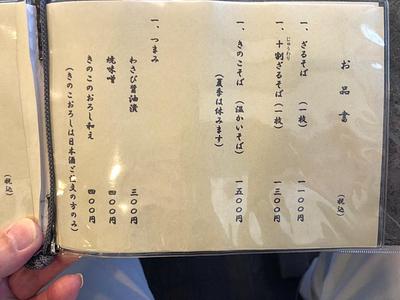 お品書
(税込)
一、ざるそば (一枚) 一一〇〇円
一、十割ざるそば (一枚) 一三〇〇円
じゅうわり
一、きのこそば (温かいそば) 一五〇〇円
(夏季は休みます)
一、つまみ
わさび醤油漬 三〇〇円
焼味噌 四〇〇円
きのこのおろし和え 四〇〇円
(きのこおろしは日本酒と 注文の方のみ)
(税込)